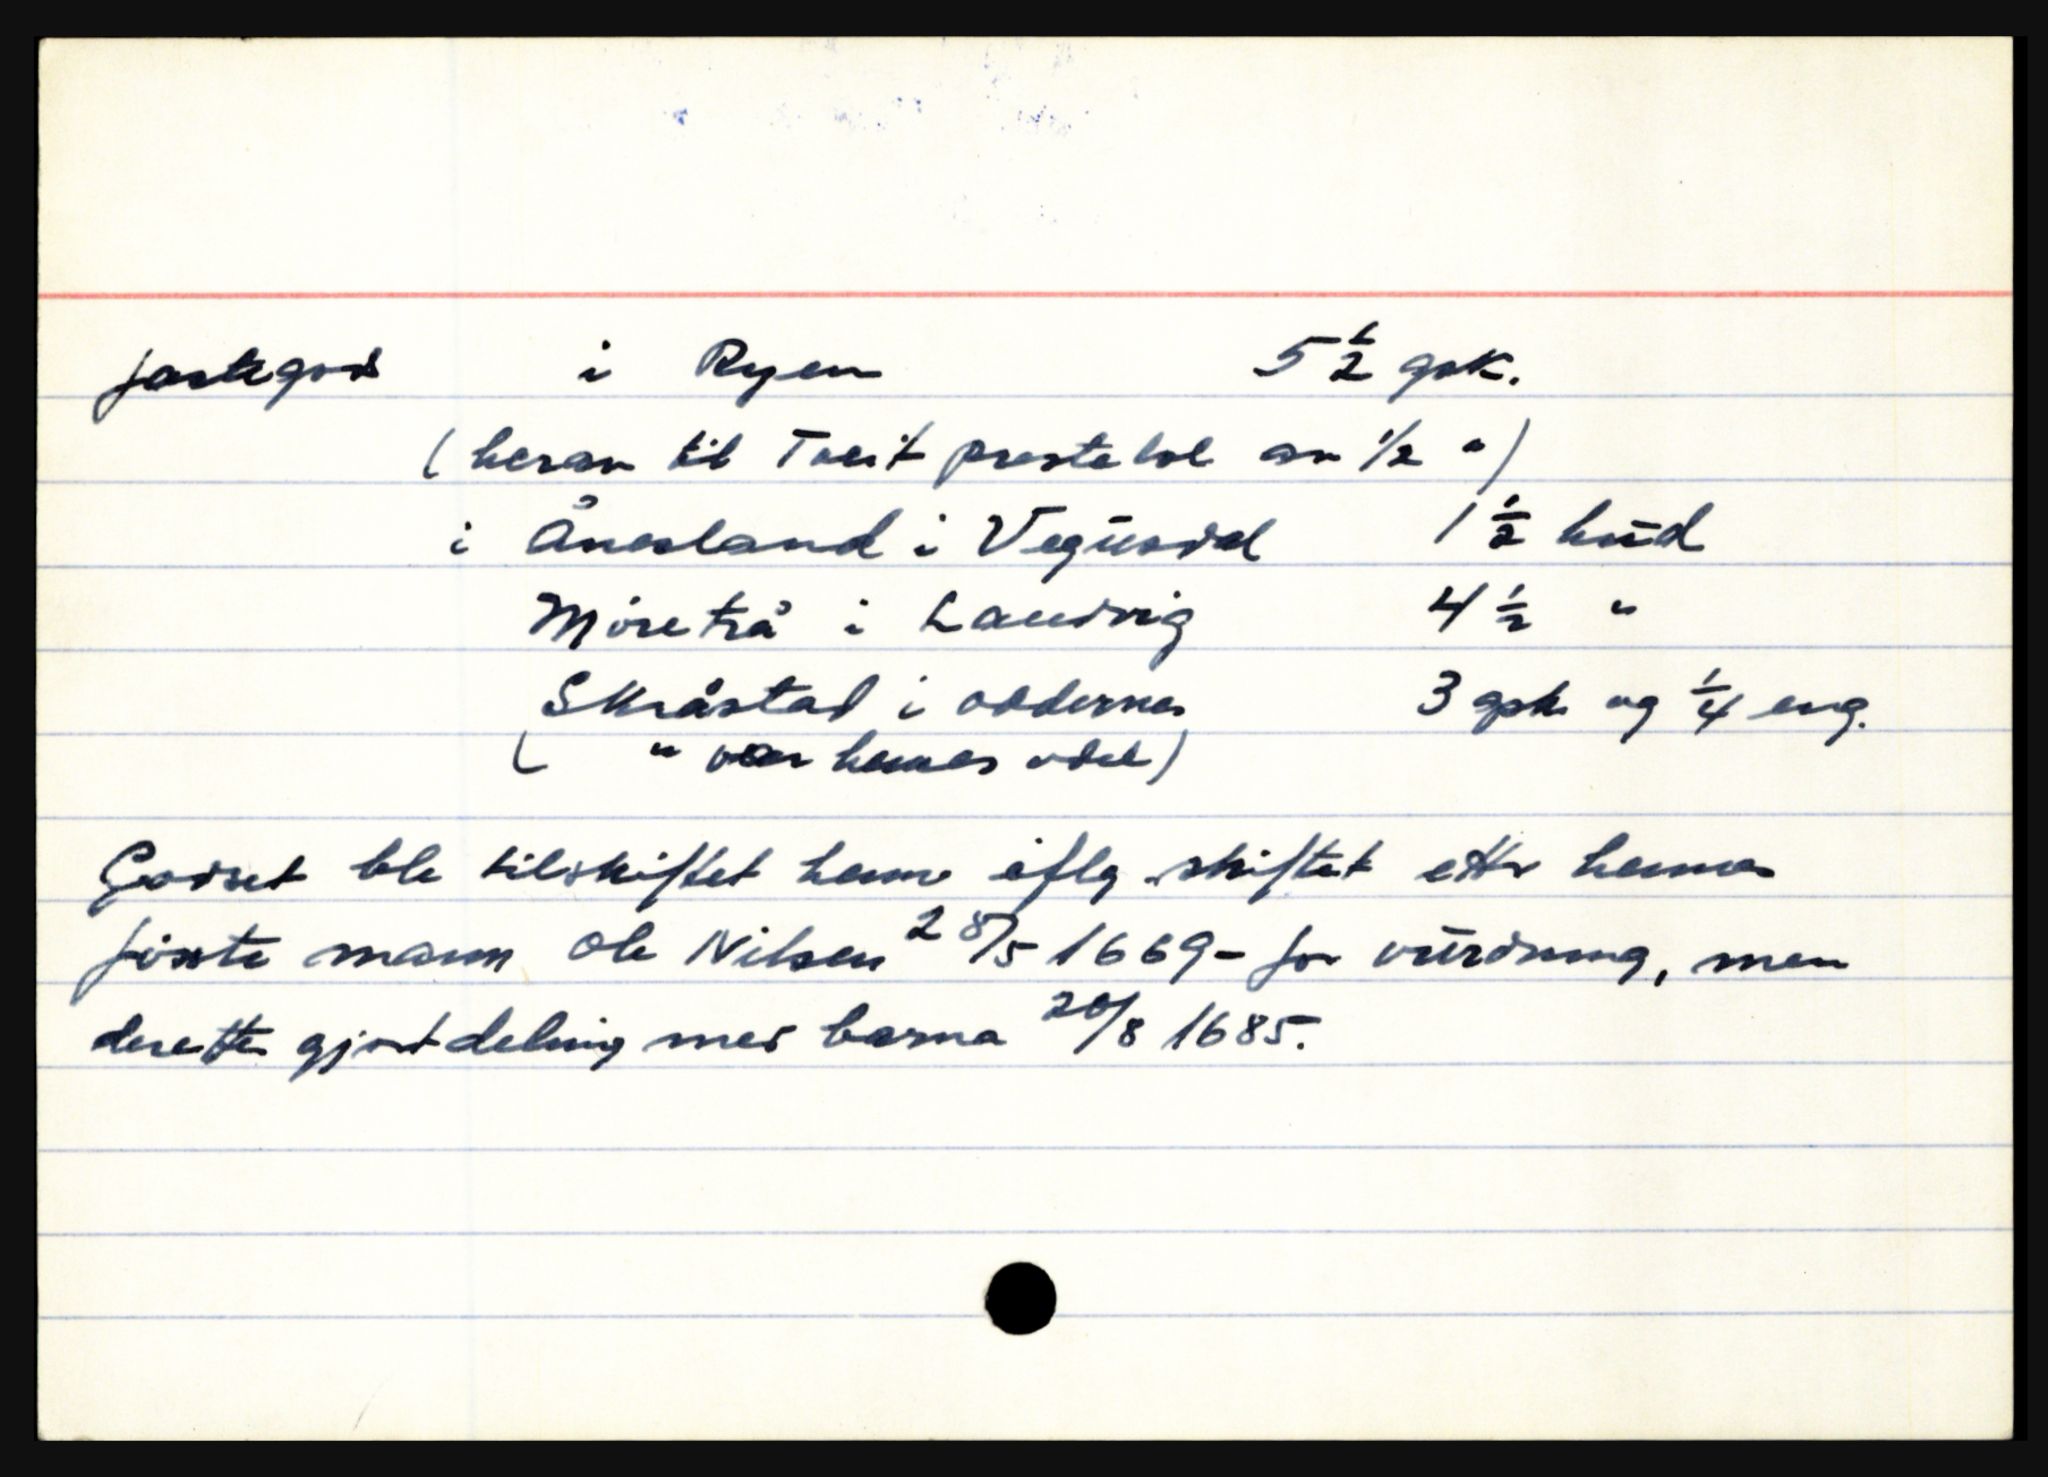 jortegods i Ryen 5 1/2 gsk.
(herav til Tveit prestebol av 1/2 ")
i Ånesland i Vegusdal 1 1/2 hud
Möretrå i Landvig 4 1/2 "
Skråstad i Oddernes 3 gsk og 1/4 eng.
( " var hennes odel)
Godset ble tilskiftet henne iflg. skiftet etter hennes
første mann Ole Nilsen 28/5 1669 - for vurdning, men
deretter gjort deling med barna 20/8 1685.